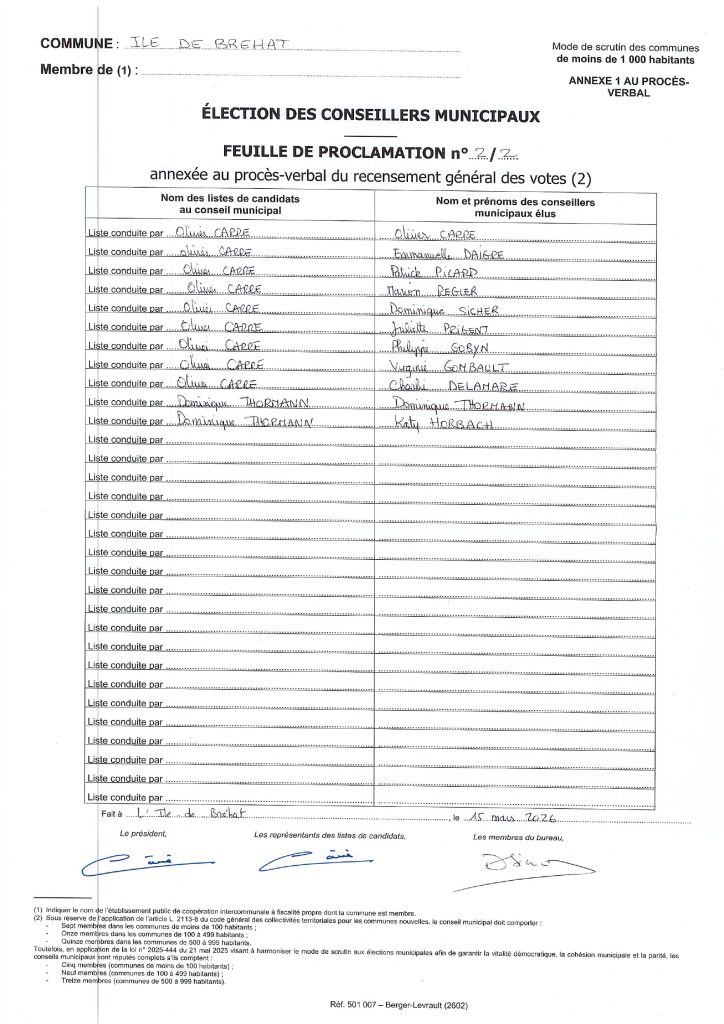 COMMUNE : ILE DE BREHAT
Mode de scrutin des communes
de moins de 1 000 habitants
Membre de (1) :
ANNEXE 1 AU PROCÈS-
VERBAL
ÉLECTION DES CONSEILLERS MUNICIPAUX
FEUILLE DE PROCLAMATION n° 2/2
annexée au procès-verbal du recensement général des votes (2)
Nom des listes de candidats
au conseil municipal
Nom et prénoms des conseillers
municipaux élus
Liste conduite par Olivier CARRE Olivier CARRE
Liste conduite par Olivier CARRE Emmanuelle DAIGRE
Liste conduite par Olivier CARRE Patrick PICARD
Liste conduite par Olivier CARRE Marion REGIER
Liste conduite par Olivier CARRE Dominique SICHER
Liste conduite par Olivier CARRE Juliette PRIGENT
Liste conduite par Olivier CARRE Philippe GOBYN
Liste conduite par Olivier CARRE Virginie GOMBAULT
Liste conduite par Olivier CARRE Charlie DELAMARE
Liste conduite par Dominique THORMANN Dominique THORMANN
Liste conduite par Dominique THORMANN Katy HORBACH
Liste conduite par
Liste conduite par
Liste conduite par
Liste conduite par
Liste conduite par
Liste conduite par
Liste conduite par
Liste conduite par
Liste conduite par
Liste conduite par
Liste conduite par
Liste conduite par
Liste conduite par
Liste conduite par
Liste conduite par
Liste conduite par
Liste conduite par
Liste conduite par
Liste conduite par
Liste conduite par
Fait à L'Ile de Bréhat, le 15 mars 2026
Le président,
Les représentants des listes de candidats,
Les membres du bureau,
(1) Indiquer le nom de l'établissement public de coopération intercommunale à fiscalité propre dont la commune est membre.
(2) Sous réserve de l'application de l'article L. 2113-8 du code général des collectivités territoriales pour les communes nouvelles, le conseil municipal doit comporter :
- Sept membres dans les communes de moins de 100 habitants ;
- Onze membres dans les communes de 100 à 499 habitants ;
- Quinze membres dans les communes de 500 à 999 habitants.
Toutefois, en application de la loi n° 2025-444 du 21 mai 2025 visant à harmoniser le mode de scrutin aux élections municipales afin de garantir la vitalité démocratique, la cohésion municipale et la parité, les
conseils municipaux sont réputés complets s'ils comptent :
- Cinq membres (communes de moins de 100 habitants) ;
- Neuf membres (communes de 100 à 499 habitants) ;
- Treize membres (communes de 500 à 999 habitants).
Réf. 501 007 – Berger-Levrault (2602)